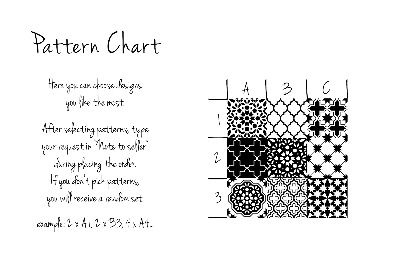 Pattern Chart
Here you can choose designs
you like the most.
After selecting patterns, type
your request in "Note to seller"
during placing the order.
If you don't pick patterns,
you will receive a random set.
example: 2 x A1, 2 x B3, 4 x A4...
A B C
1
2
3